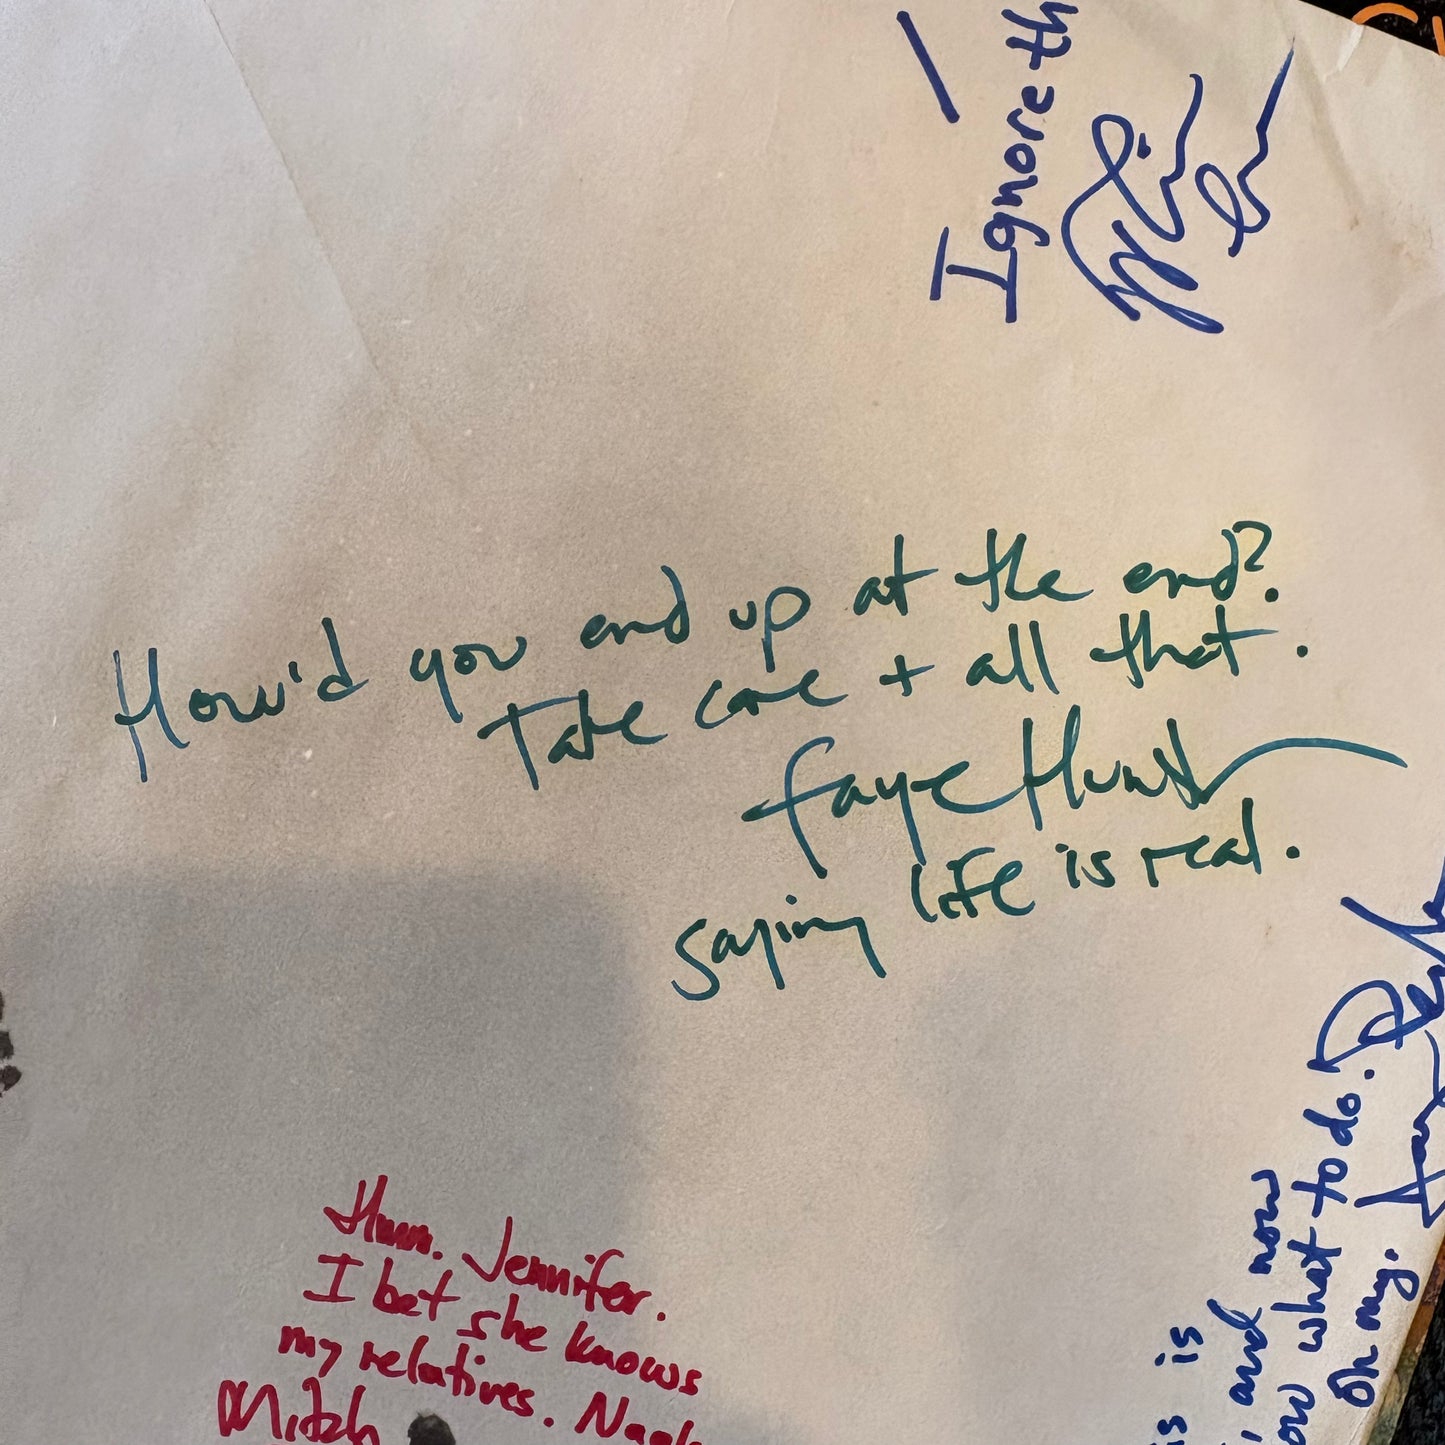 Ignore th
How'd you end up at the end?
Take care + all that.
Faye Hunter
saying life is real.
Hmm. Jennifer.
I bet she knows
my relatives. Naah
Mitch
is is
and now
ow what to do.
Oh my.